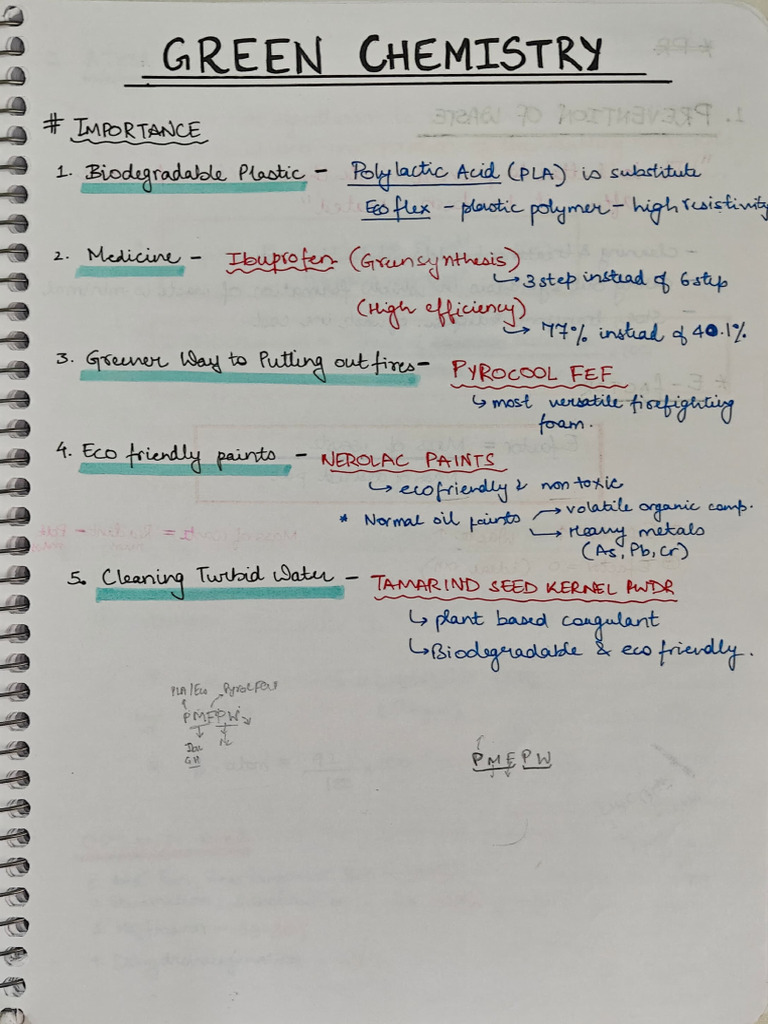 GREEN CHEMISTRY
# IMPORTANCE
1. Biodegradable Plastic - Polylactic Acid (PLA) is substitute
Eco flex - plastic polymer - high resistivity
2. Medicine - Ibuprofen (Green synthesis)
↳ 3 step instead of 6 step
(High efficiency)
↳ 77% instead of 40.1%
3. Greener Way to Putting out fires - PYROCOOL FEF
↳ most versatile firefighting
foam.
4. Eco friendly paints - NEROLAC PAINTS
↳ ecofriendly & non toxic
* Normal oil paints → volatile organic comp.
→ Heavy metals
(As, Pb, Cr)
5. Cleaning Turbid Water - TAMARIND SEED KERNEL PWDR
↳ plant based coagulant
↳ Biodegradable & eco friendly.
PLA/Eco
PMFPW
Ibu
PMFPW